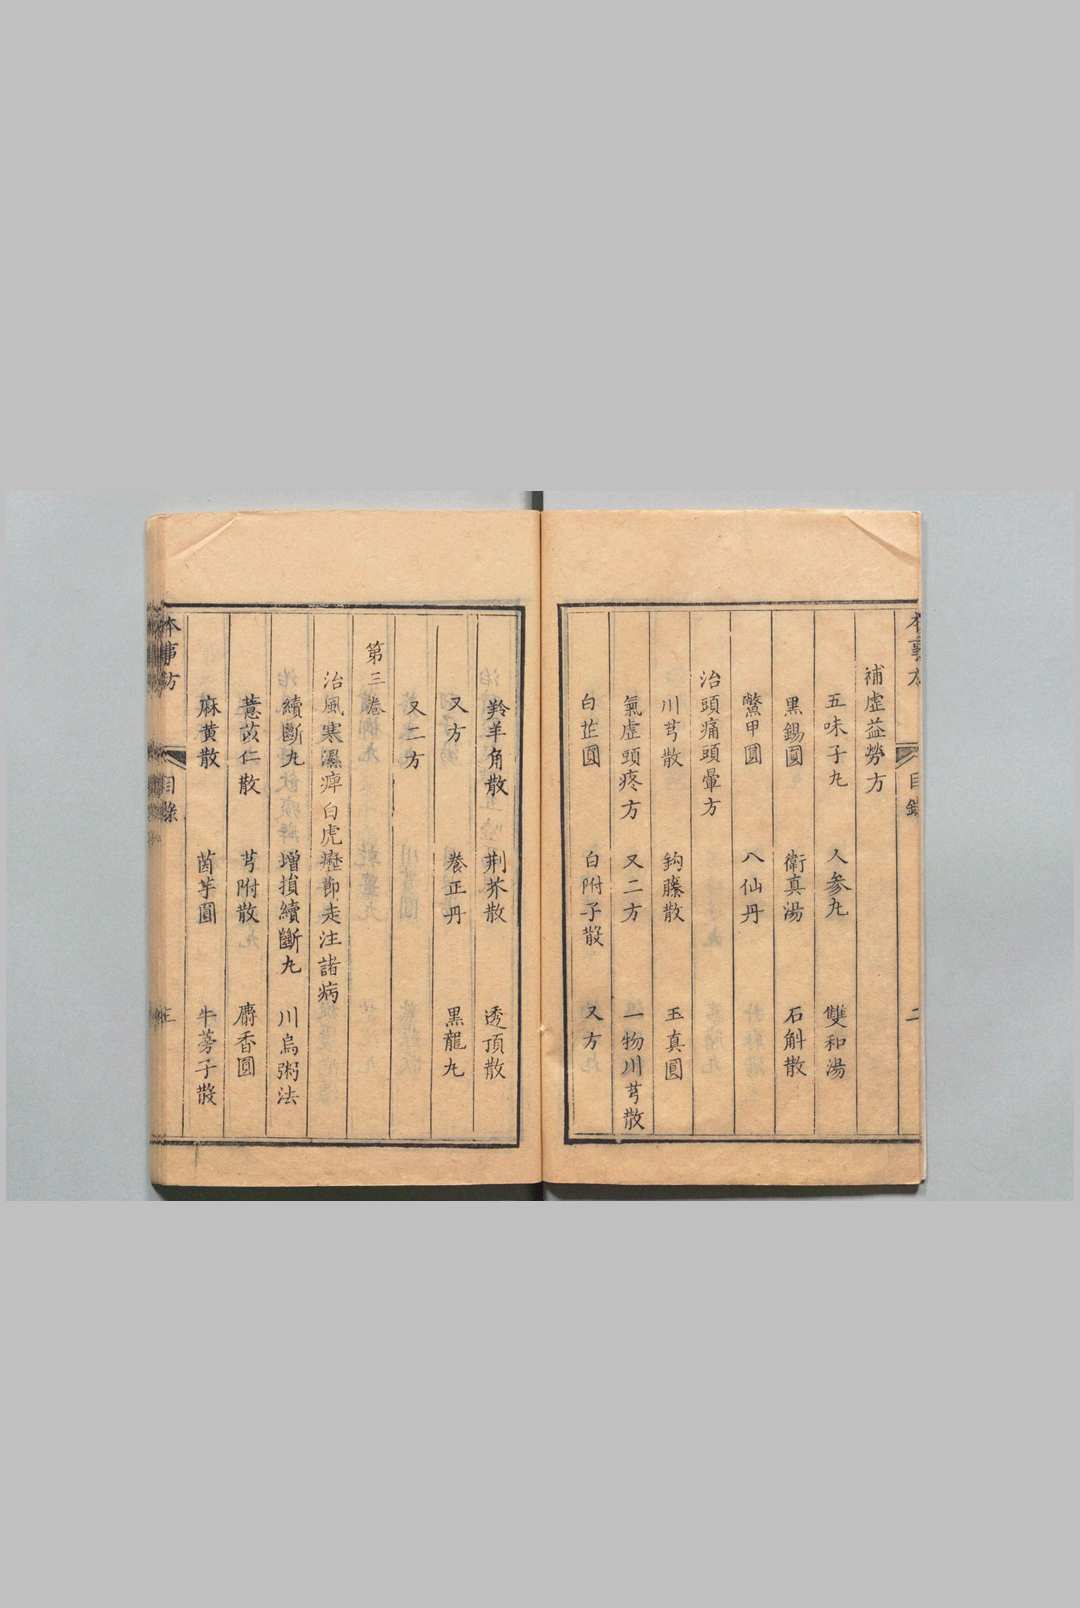 補虛益勞方
五味子丸　人參丸　雙和湯
黑錫圓　衛真湯　石斛散
鱉甲圓　八仙丹
治頭痛頭暈方
川芎散　鈎藤散　玉真圓
氣虛頭疼方　又二方　一物川芎散
白芷圓　白附子散　又方
羚羊角散　荆芥散　透頂散
又方　養正丹　黑龍丸
又二方
第三卷
治風寒濕痺白虎歷節走注諸病
續斷丸　增損續斷丸　川烏粥法
薏苡仁散　芎附散　麝香圓
麻黄散　茵芋圓　牛蒡子散
本事方　目錄